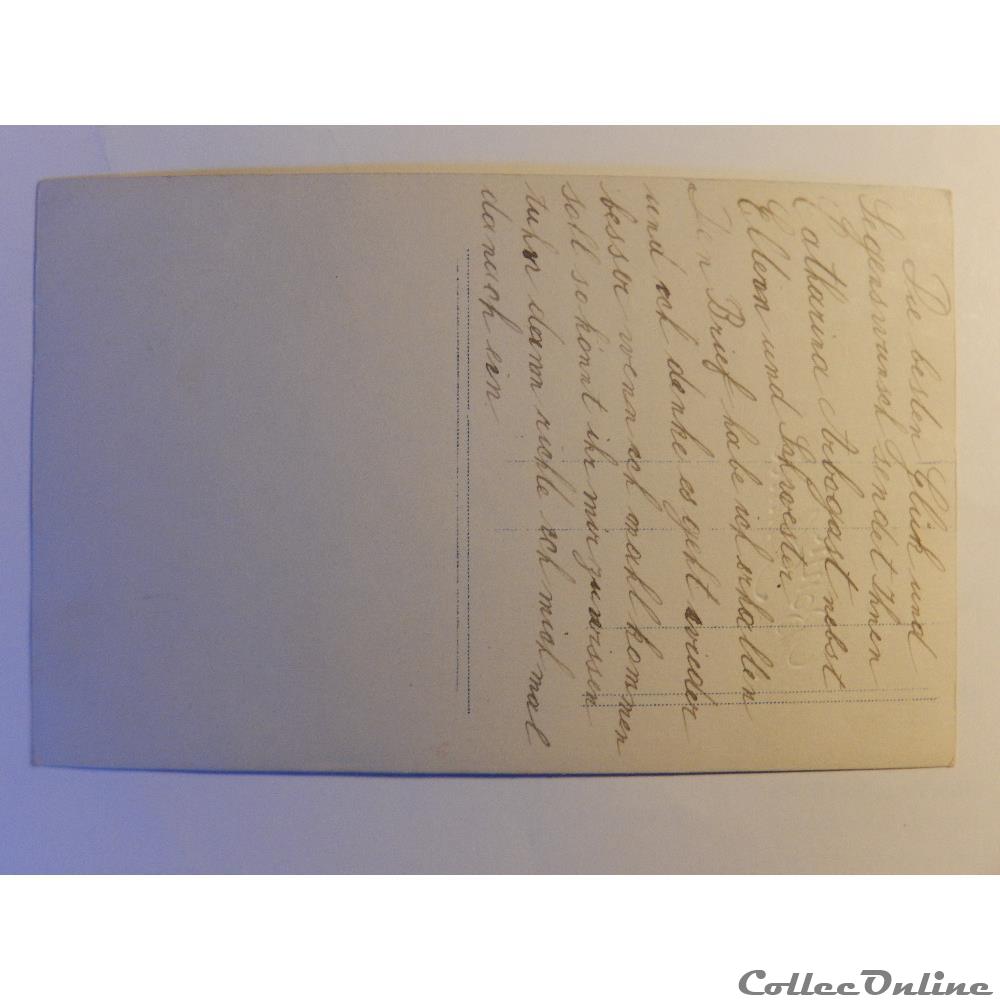 Die besten Glück und
Segenswunsch sendet Ihnen
Catharina Arbogast nebst
Eltern und Schwester.
Den Brief habe ich erhalten
und ich denke es geht wieder
besser wenn ich mahl kommen
soll so könnt ihr mir zu wissen
tuhn dann richte ich mich mal
danach ein
CollecOnline